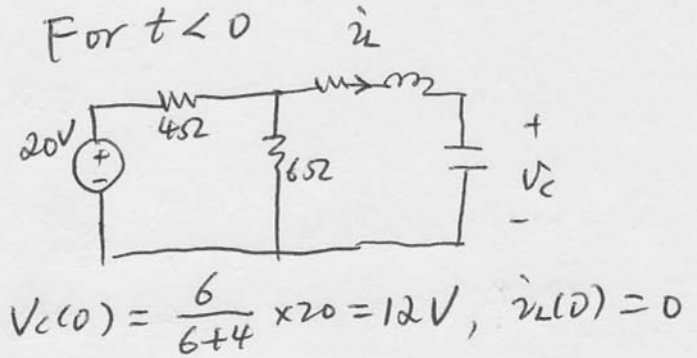 For t < 0
i_L
4Ω
20V
+
-
6Ω
+
V_c
-
V_c(0) = 6/(6+4) × 20 = 12V, i_L(0) = 0